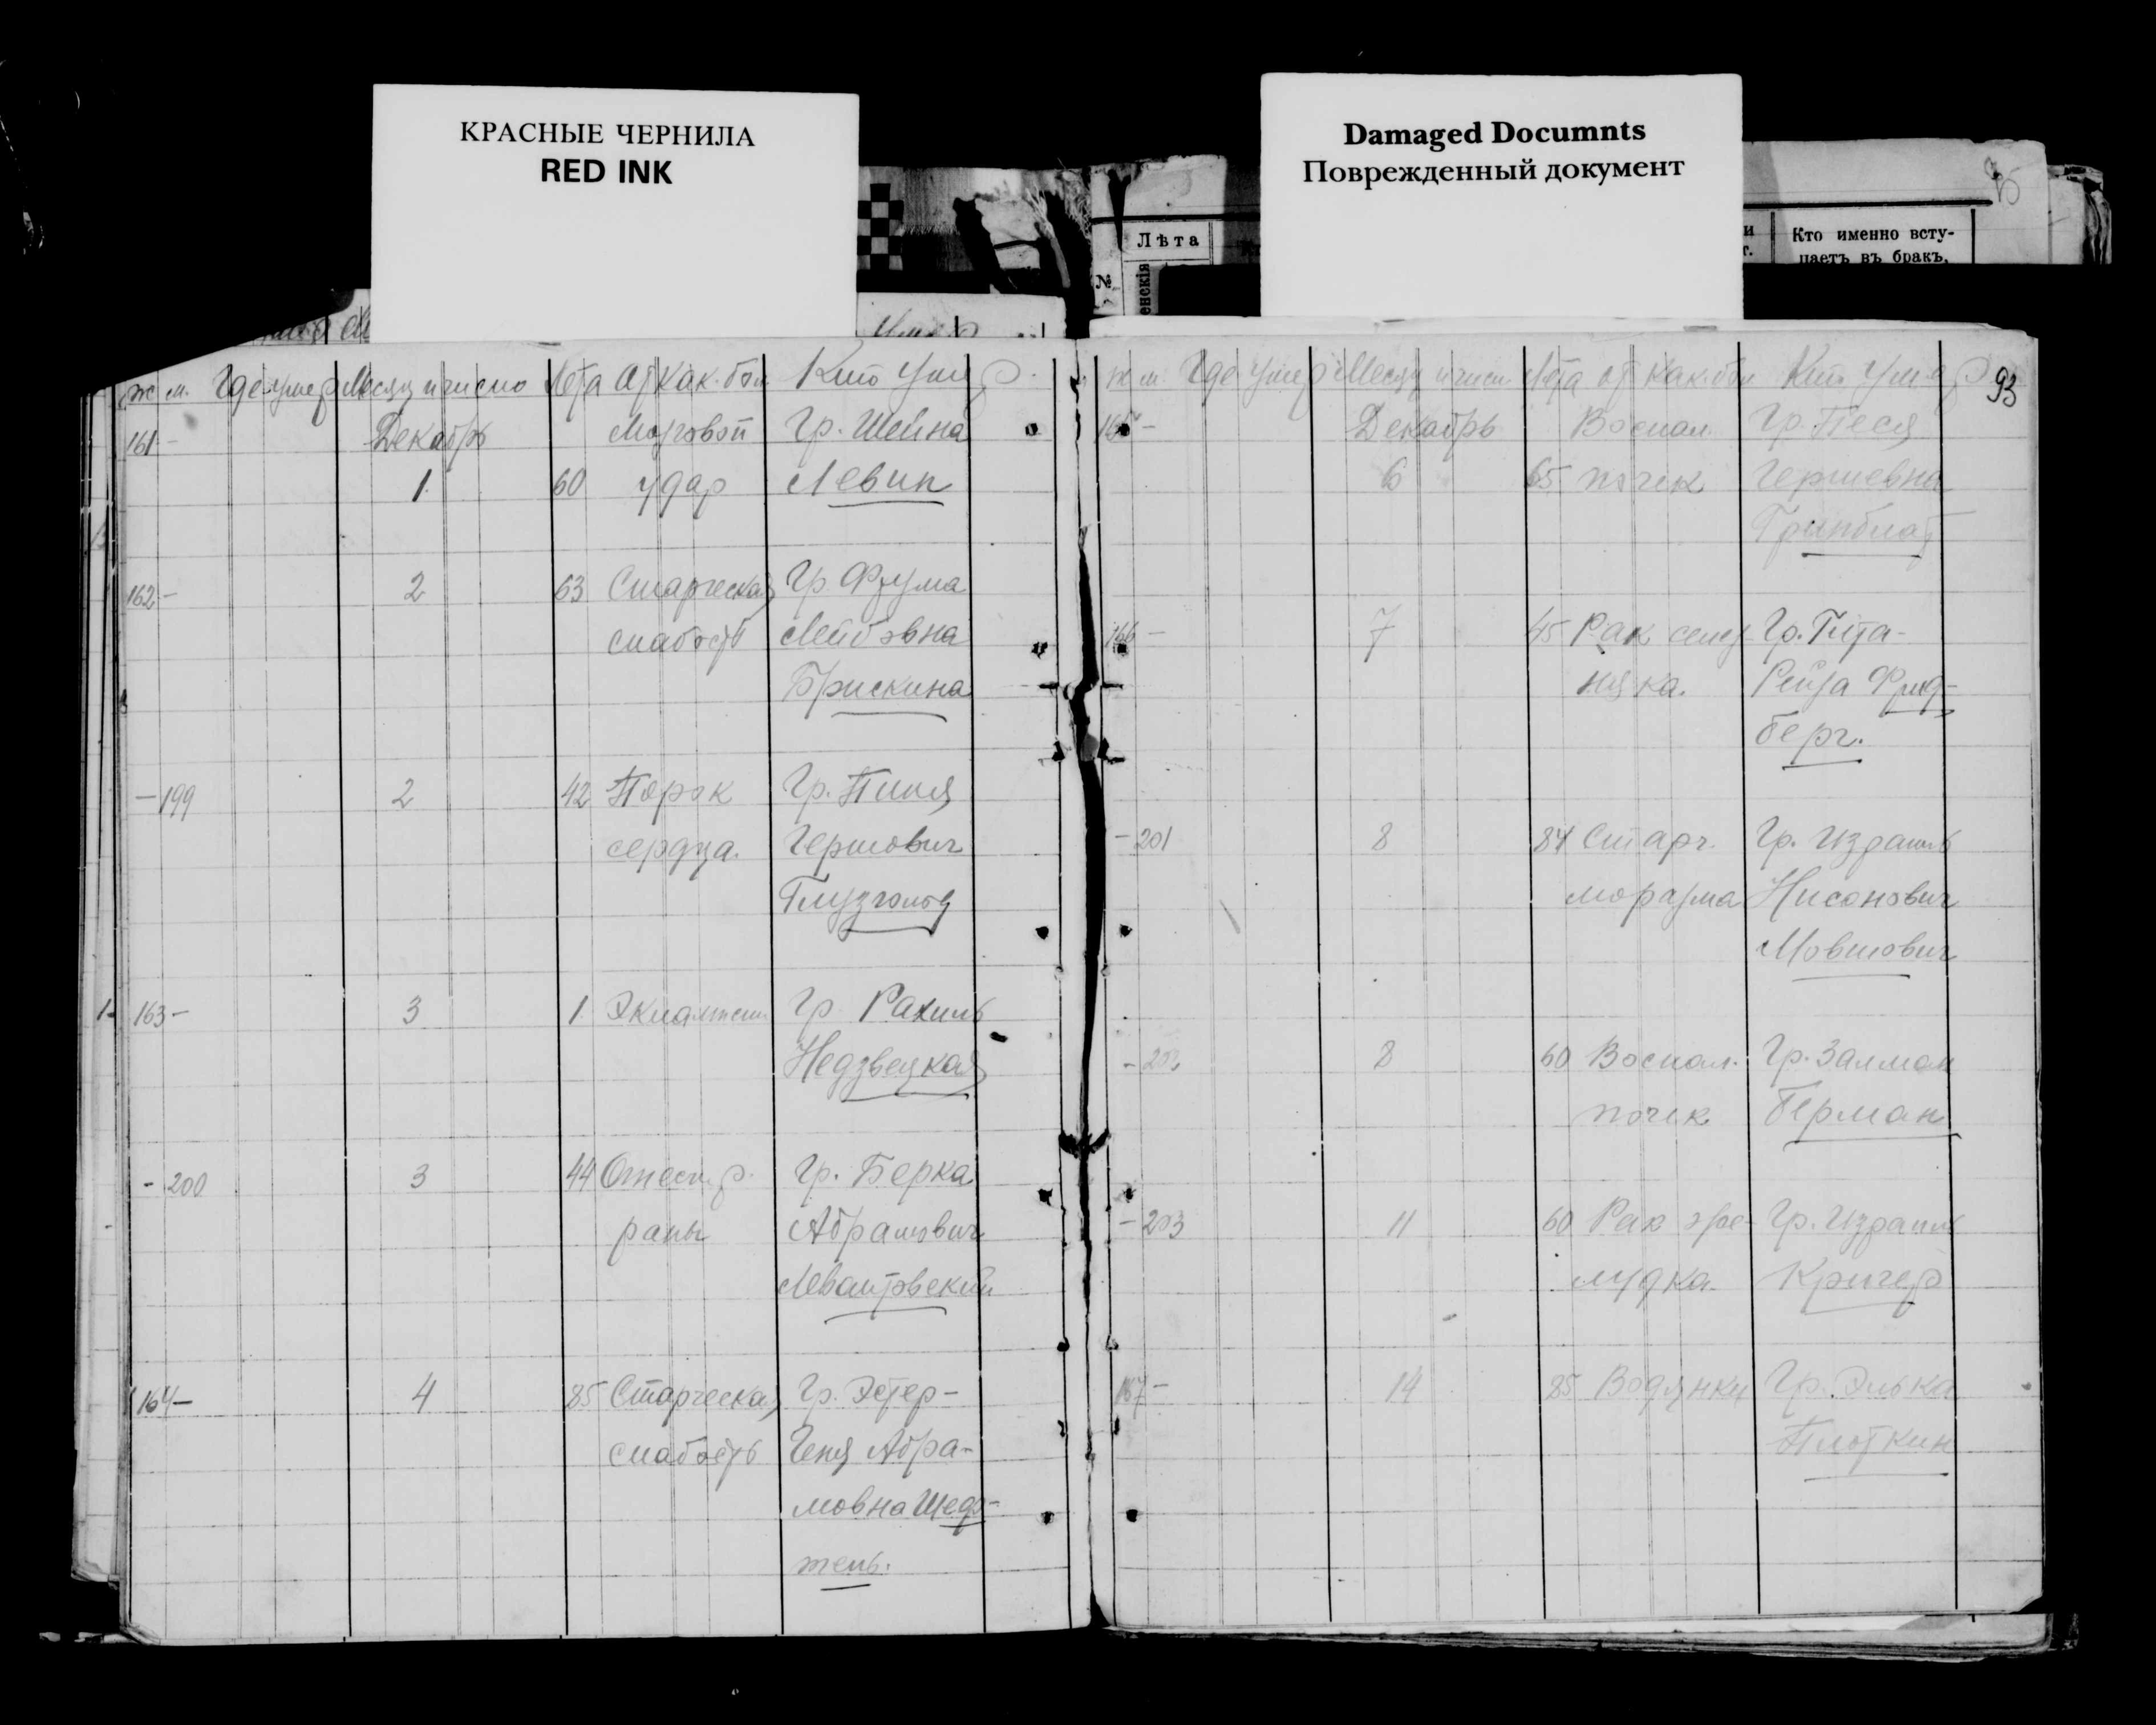 КРАСНЫЕ ЧЕРНИЛА
RED INK
Damaged Documnts
Поврежденный документ
Лѣта
№
енскія
Кто именно всту-
паетъ въ бракъ,
93
ж м. Где умер Месяц и число Лета От как. бол. Кто умер.
161 - Декабрь Мозговой Гр. Шейна
1. 60 удар Левин
162 - 2 63 Старческая Гр. Фрума
слабость Лейбовна
Брискина
- 199 2 42 Порок Гр. Пиня
сердца. Гершович
163 - 3 1 Гр. Рахиль
Недзвецкая
- 200 3 44 Гр. Берка
раны Абрамович
164 - 4 85 Старческая Гр. Эстер-
слабость Геня Абра-
мовна
ж м. Где умер Месяц и числ. Лета от как. бол Кто умер
165 - Декабрь Воспал. Гр. Песя
6 65 почек Гершевна
Гринблат
166 - 7 45 Рак Гр. Гита-
Рейза Фрид-
берг.
- 201 8 84 Старч. Гр. Израиль
Нисонович
Мовшович
- 202 8 60 Воспал. Гр. Залман
почек Берман
- 203 11 60 Рак же- Гр. Израиль
лудка. Кричер
167 - 14 85 Водянки Гр. Элька
Плоткин